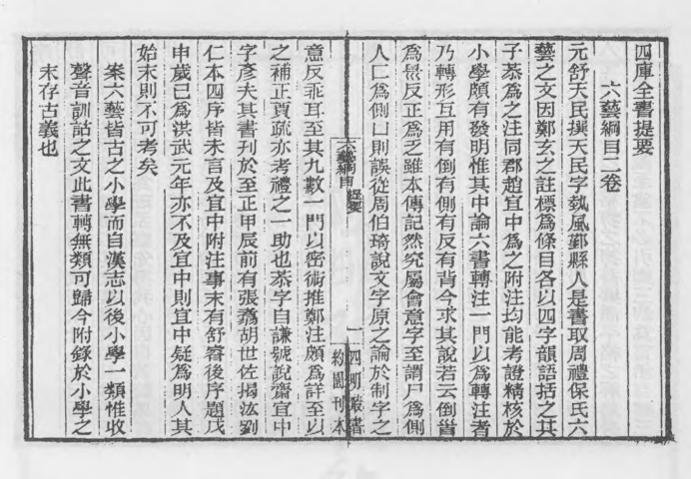 四庫全書提要
六藝綱目二卷
元舒天民撰天民字埶風鄞縣人是書取周禮保氏六
藝之文因鄭玄之註標爲條目各以四字韻語括之其
子恭爲之注同郡趙宜中爲之附注均能考證精核於
小學頗有發明惟其中論六書轉注一門以爲轉注者
乃轉形互用有倒有側有反有背今求其說若云倒𥄉
爲㬎反正爲乏雖本傳記然究屬會意字至謂尸爲側
人匚爲側凵則誤從周伯琦說文字原之論於制字之
六藝綱目 提要
一
四明叢書
約園刊本
意反乖耳至其九數一門以密術推鄭注頗爲詳至以
之補正賈疏亦考禮之一助也恭字自謙號說齋宜中
字彥夫其書刊於至正甲辰前有張翥胡世佐揭汯劉
仁本四序皆未言及宜中附注事末有舒睿後序題戊
申歲已爲洪武元年亦不及宜中則宜中疑爲明人其
始末則不可考矣
案六藝皆古之小學而自漢志以後小學一類惟收
聲音訓詁之文此書轉無類可歸今附錄於小學之
末存古義也